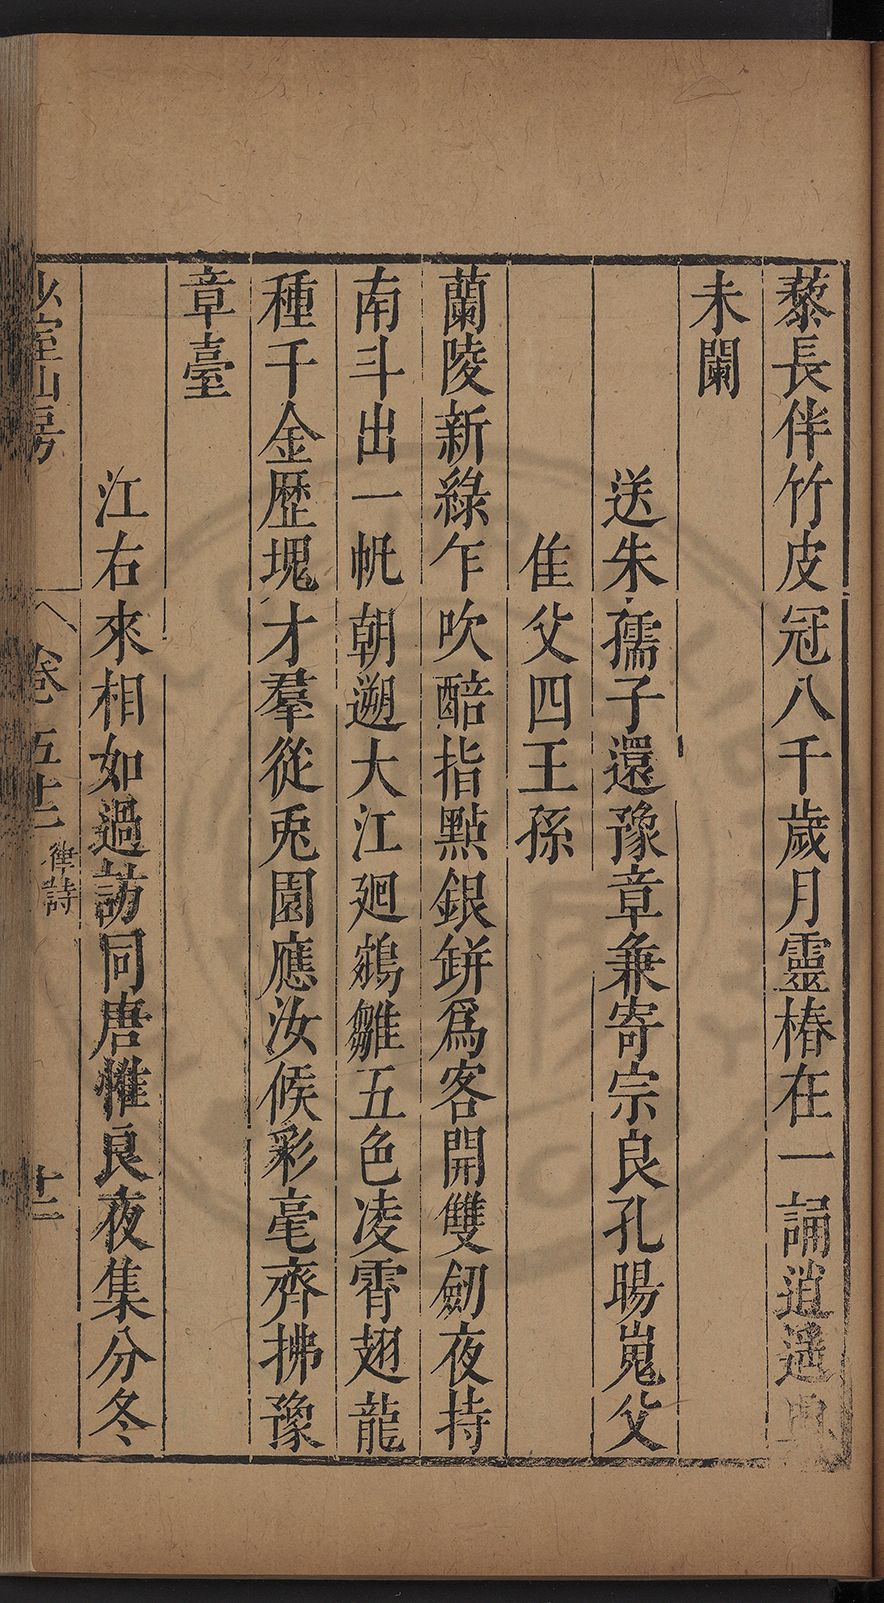 藜長伴竹皮冠八千歲月靈椿在一誦逍遙興
未闌
送朱孺子還豫章兼寄宗良孔暘嵬父
隹父四王孫
蘭陵新綠乍吹醅指點銀缾爲客開雙劒夜持
南斗出一帆朝遡大江廻鵷雛五色凌霄翅龍
種千金歷塊才羣從兎園應汝候彩毫齊拂豫
章臺
江右來相如過訪同唐惟良夜集分冬
少室山房
卷五十二
律詩
十二